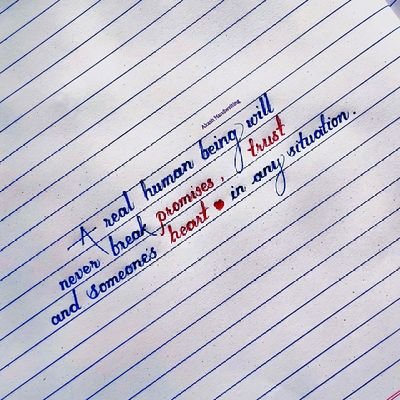 Akash Handwriting
A real human being will
never break promises, trust
and someone's heart ❤ in any situation.